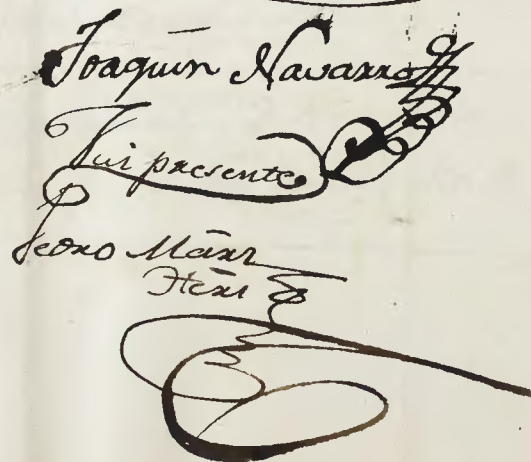 Joaquin Navarro
Fui presente
Pedro Mānz